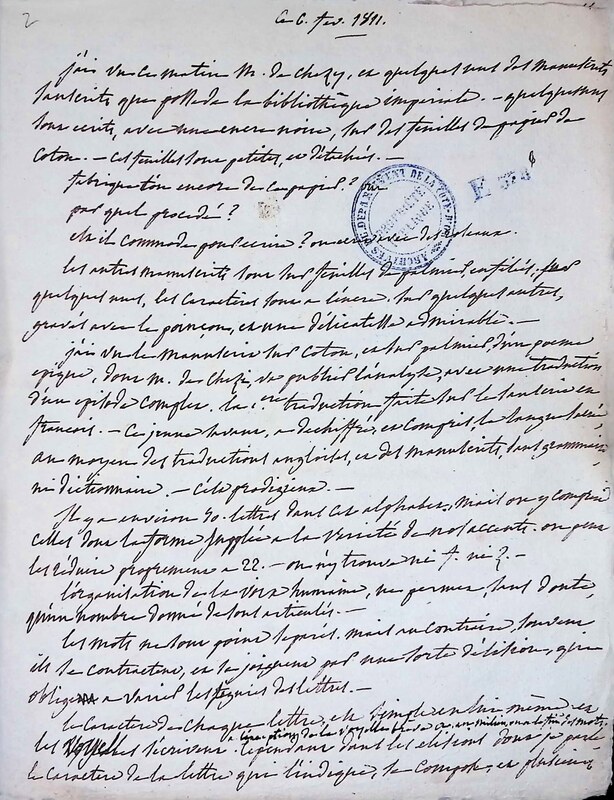 2
Ce 6. fev. 1811.
j'ai vu ce matin M. de Chezy, et quelques uns des manuscrits
sanscrits que possede la bibliothèque imperiale. - quelques uns
sont ecrits, avec une encre noire, sur des feuilles de papier de
coton. - ces feuilles sont petites, et détachés. -
fabrique t'on encore de ce papier?
par quel procedé?
est il commode pour ecrire? on ecrit avec des roseaux.
les autres manuscrits sont sur feuilles de palmier enfilés, sur
quelques unes, les caractères sont a l'encre. sur quelques autres,
gravés avec le poinçon, et une délicatesse admirable. -
j'ai vu le manuscrit sur coton, et sur palmier, d'un poeme
epique, dont M. de Chezi, va publier l'analyse, avec une traduction
d'un episode complet. la 1.ere traduction faite sur le sanscrit en
françois. - Ce jeune savant, a dechiffré, et compris, la langue
au moyen des traductions angloises, et des manuscrits, sans grammaire
ni dictionnaire. - Cela prodigieux. -
Il y a environ 50. lettres dans cet alphabet, mais on y comprend
celles dont la forme supplée a la varieté de nos accents. on peut
les réduire proprement a 22. - on n'y trouve ni f. ni z. -
l'organisation de la voix humaine, ne permet, sans doute,
qu'un nombre donné de sons articulés. -
les mots ne sont point separés, mais au contraire, souvent
ils se contractent, et se joignent par une sorte d'élision, qui
oblige a varier les figures des lettres. -
le caractere de chaque lettre, est simple en lui même et
a l'exception de la voyelle au milieu, ou a la fin des mots
les voyelles s'ecrivent. cependant dans les elisions dont je parle
le caractere de la lettre qui l'indique, se compose, et plusieurs
ARCHIVES DU DEPARTEMENT DE LA COTE-D'OR
PROPRIÉTÉ PUBLIQUE
E 378